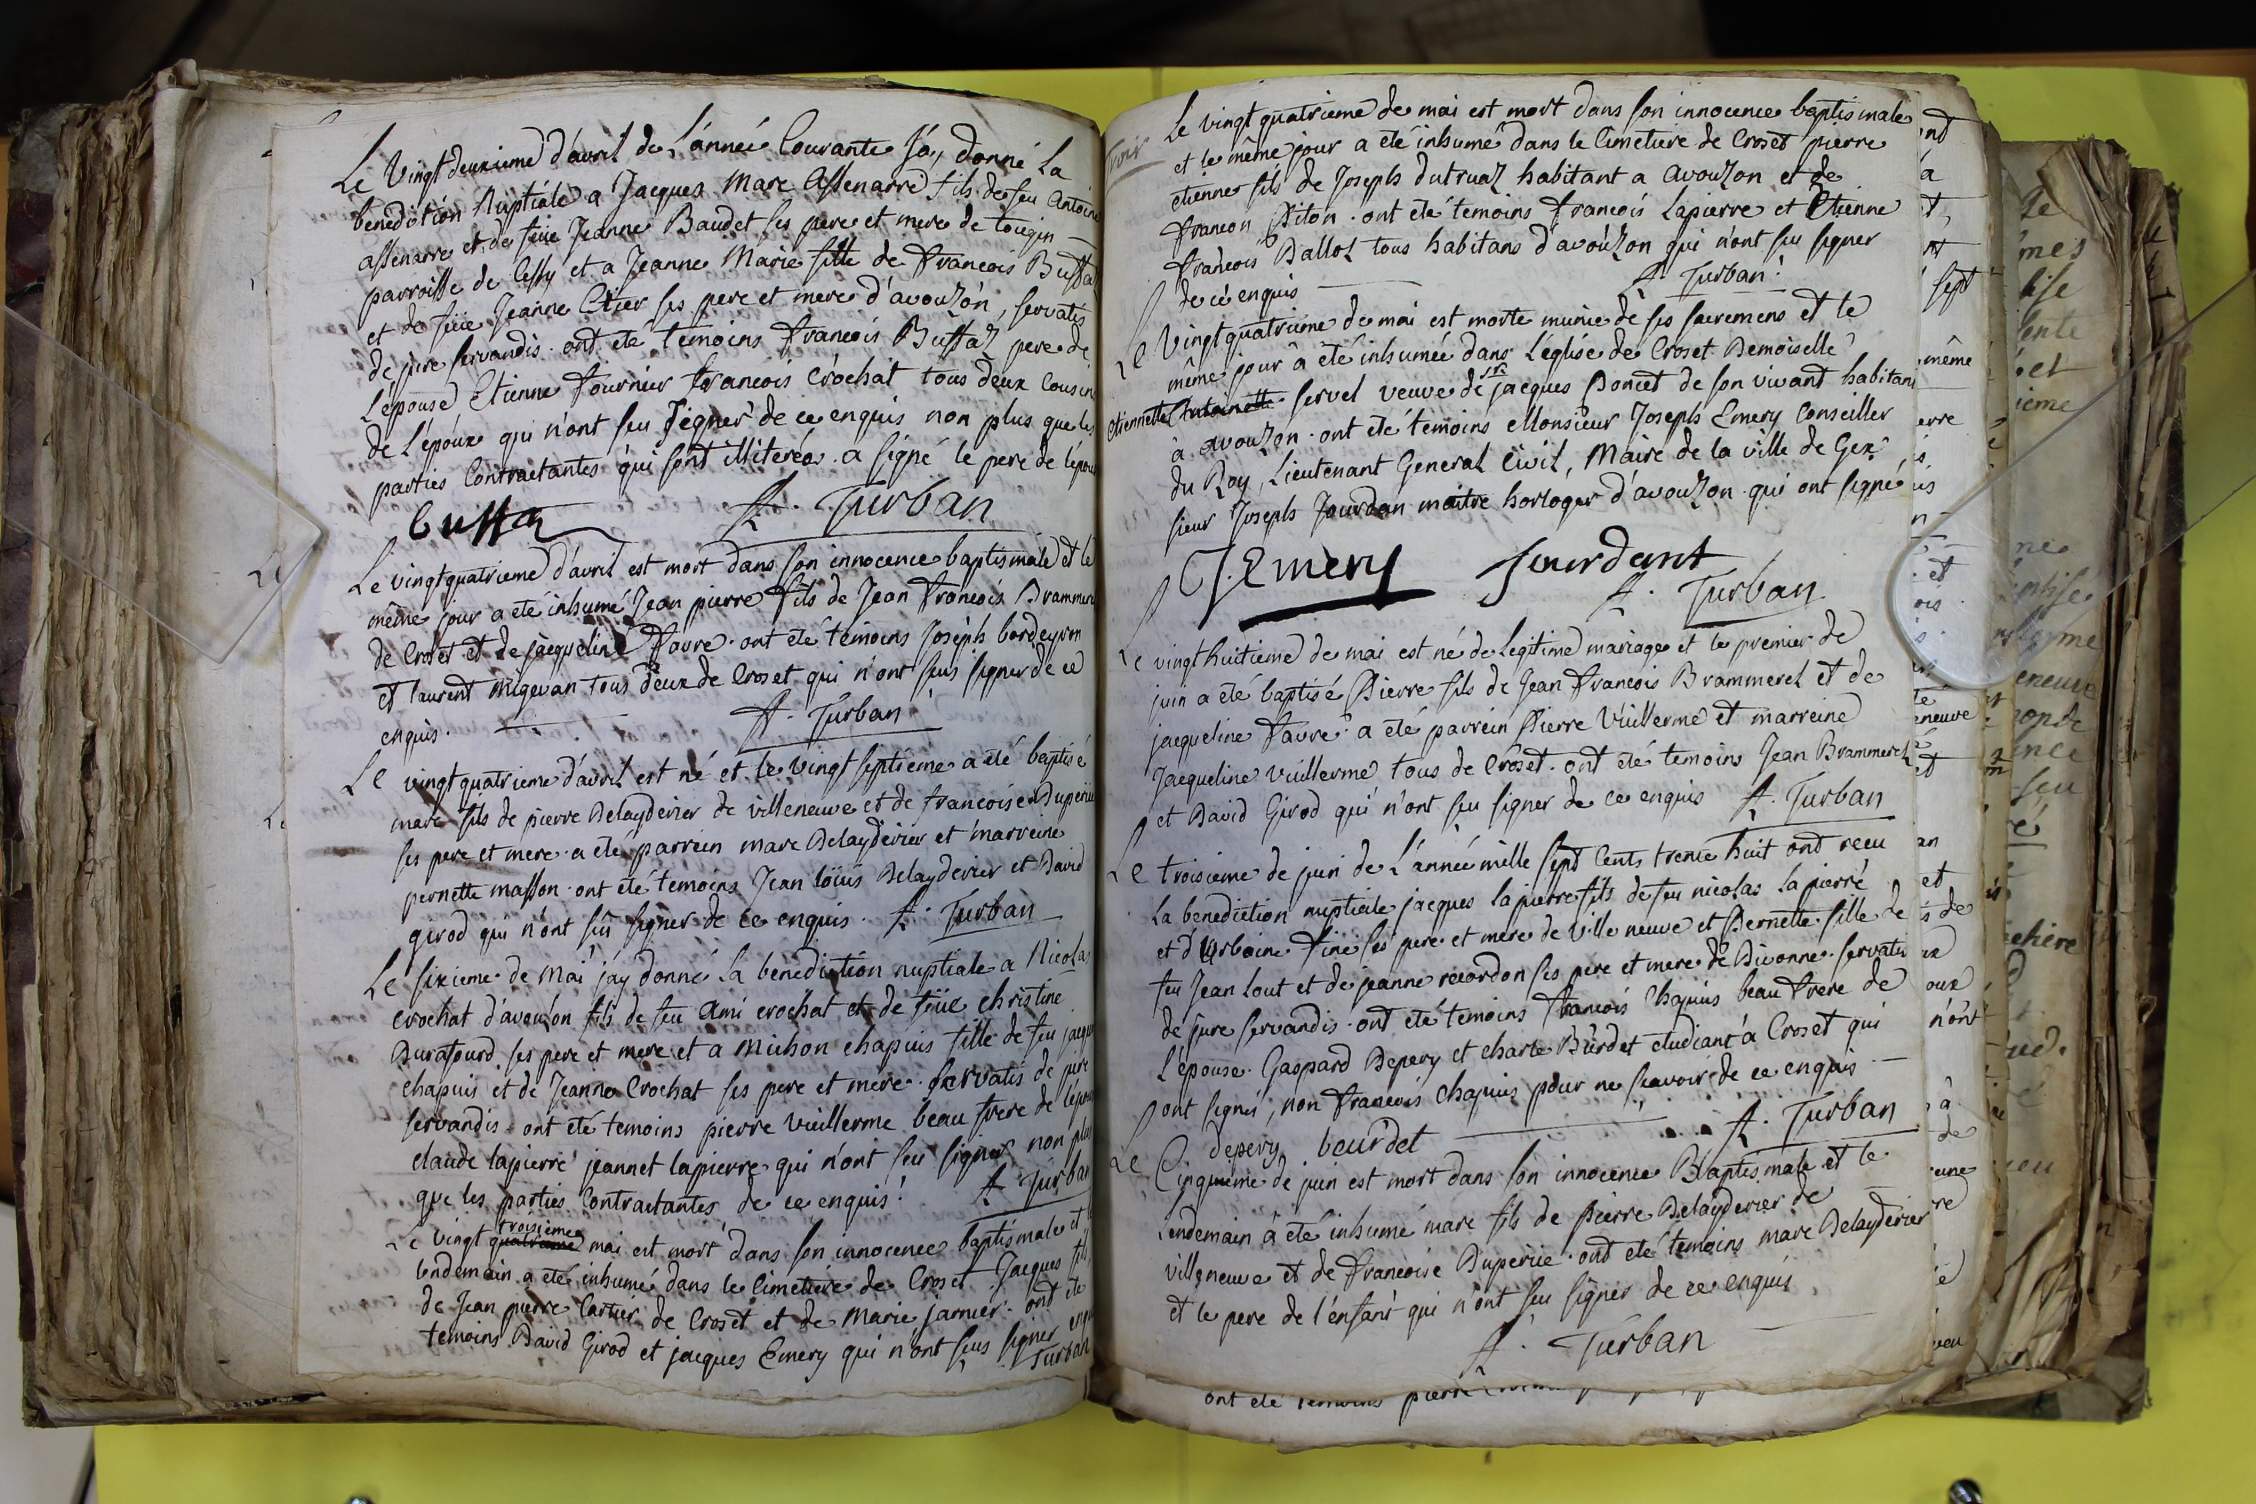 Le Vingt deuxieme d'avril de L'année Courante J'ay donné La
benediction Nuptiale a Jacques Marc Assenarre fils de feu Antoine
assenarre et de feüe Jeanne Baudet ses pere et mere de tougin
parroisse de Cessy et a Jeanne Marie fille de francois Buffaz
et de feüe Jeanne ses pere et mere d'avouzon, servatis
de jure servandis. ont été temoins francois Buffaz pere de
L'épouse, Etienne fournier francois Crochat tous deux cousins
de L'époux qui n'ont seu signer de ce enquis non plus que les
parties Contractantes qui sont illiterés. a signé le pere de lepouse
buffaz A. Turban
Le vingtquatrieme d'avril est mort dans son innocence baptismale et le
même jour a eté inhumé Jean pierre fils de Jean francois Brammerel
de Croset et de jacqueline favre. ont été temoins Joseph bordeyron
et laurent migevan tous deux de Croset qui n'ont seus signer de ce
enquis.
A. Turban
Le vingtquatrieme d'avril est né et le vingt septieme a eté baptisé
marc fils de pierre Delayderier de villeneuve et de francoise Duperie
ses pere et mere. a eté parrein marc Delayderier et marreine
pernette masson. ont été temoins Jean loüis Delayderier et David
girod qui n'ont sû signer de ce enquis. A. Turban
Le sixieme de mai j'ay donné la benediction nuptiale a Nicolas
crochat d'avouzon fils de feu Ami crochat et de feüe christine
Durafourd ses pere et mere et a michon chapuis fille de feu jacques
chapuis et de Jeanne Crochat ses pere et mere. servatis de jure
servandis. ont été temoins pierre vuillerme beau frere de l'épouse
claude lapierre jeannet lapierre qui n'ont seu signer non plus
que les parties Contractantes de ce enquis. A. Turban
Le vingt quatrieme troisieme mai est mort dans son innocence baptismale et le
lendemain a eté inhumé dans le Cimetiere de Croset Jacques fils
de Jean pierre Cartier de Croset et de Marie Jarnier. ont été
temoins David Girod et jacques Emery qui n'ont seus signer enquis
Turban
Le vingt quatrieme de mai est mort dans son innocence baptismale
et le même jour a été inhumé dans le Cimetiere de Croset pierre
etienne fils de Joseph dutruaz habitant a avouzon et de
francon Piton. ont été temoins francois Lapierre et Etienne
francois Ballot tous habitans d'avouzon qui n'ont seu signer
de ce enquis A. Turban
Le Vingt quatrieme de mai est morte munie de ses sacremens et le
même jour a été inhumée dans L'église de Croset Demoiselle
etiennette Antoinette servel veuve de sr. jacques Poncet de son vivant habitant
à avouzon. ont été temoins Monsieur Joseph Emery Conseiller
du Roy, Lieutenant General Civil, Maire de la ville de Gex
sieur Joseph Jourdan maitre horloger d'avouzon qui ont signé
J. Emery Jourdant
A. Turban
Le vingt huitieme de mai est né de Legitime mariage et le premier de
juin a eté baptisé Pierre fils de Jean francois Brammerel et de
jacqueline favre. a eté parrein Pierre Vuillerme et marreine
Jacqueline vuillerme tous de Croset. ont été temoins Jean Brammerel
et David Girod qui n'ont seu signer de ce enquis A. Turban
Le troisieme de juin de L'année mille sept Cents trente huit ont receu
La benediction nuptiale jacques lapierre fils de feu nicolas lapierre
et d'Urbaine fine ses pere et mere de Ville neuve et Pernette fille de
feu Jean Lout et de jeanne recordon ses pere et mere de Divonne. servatis
de jure servandis. ont été temoins francois Chapuis beau frere de
L'épouse. Gaspard Depery et charle Burdet etudiant a Croset qui
ont signés, non francois chapuis pour ne scavoir de ce enquis
depery beurdet A. Turban
Le Cinquieme de juin est mort dans son innocence Baptismale et le
Lendemain a été inhumé marc fils de pierre Delayderier de
villeneuve et de francoise Duperie. ont eté temoins marc Delayderier
et le pere de l'enfant qui n'ont seu signer de ce enquis
A. Turban
ont été temoins pierre